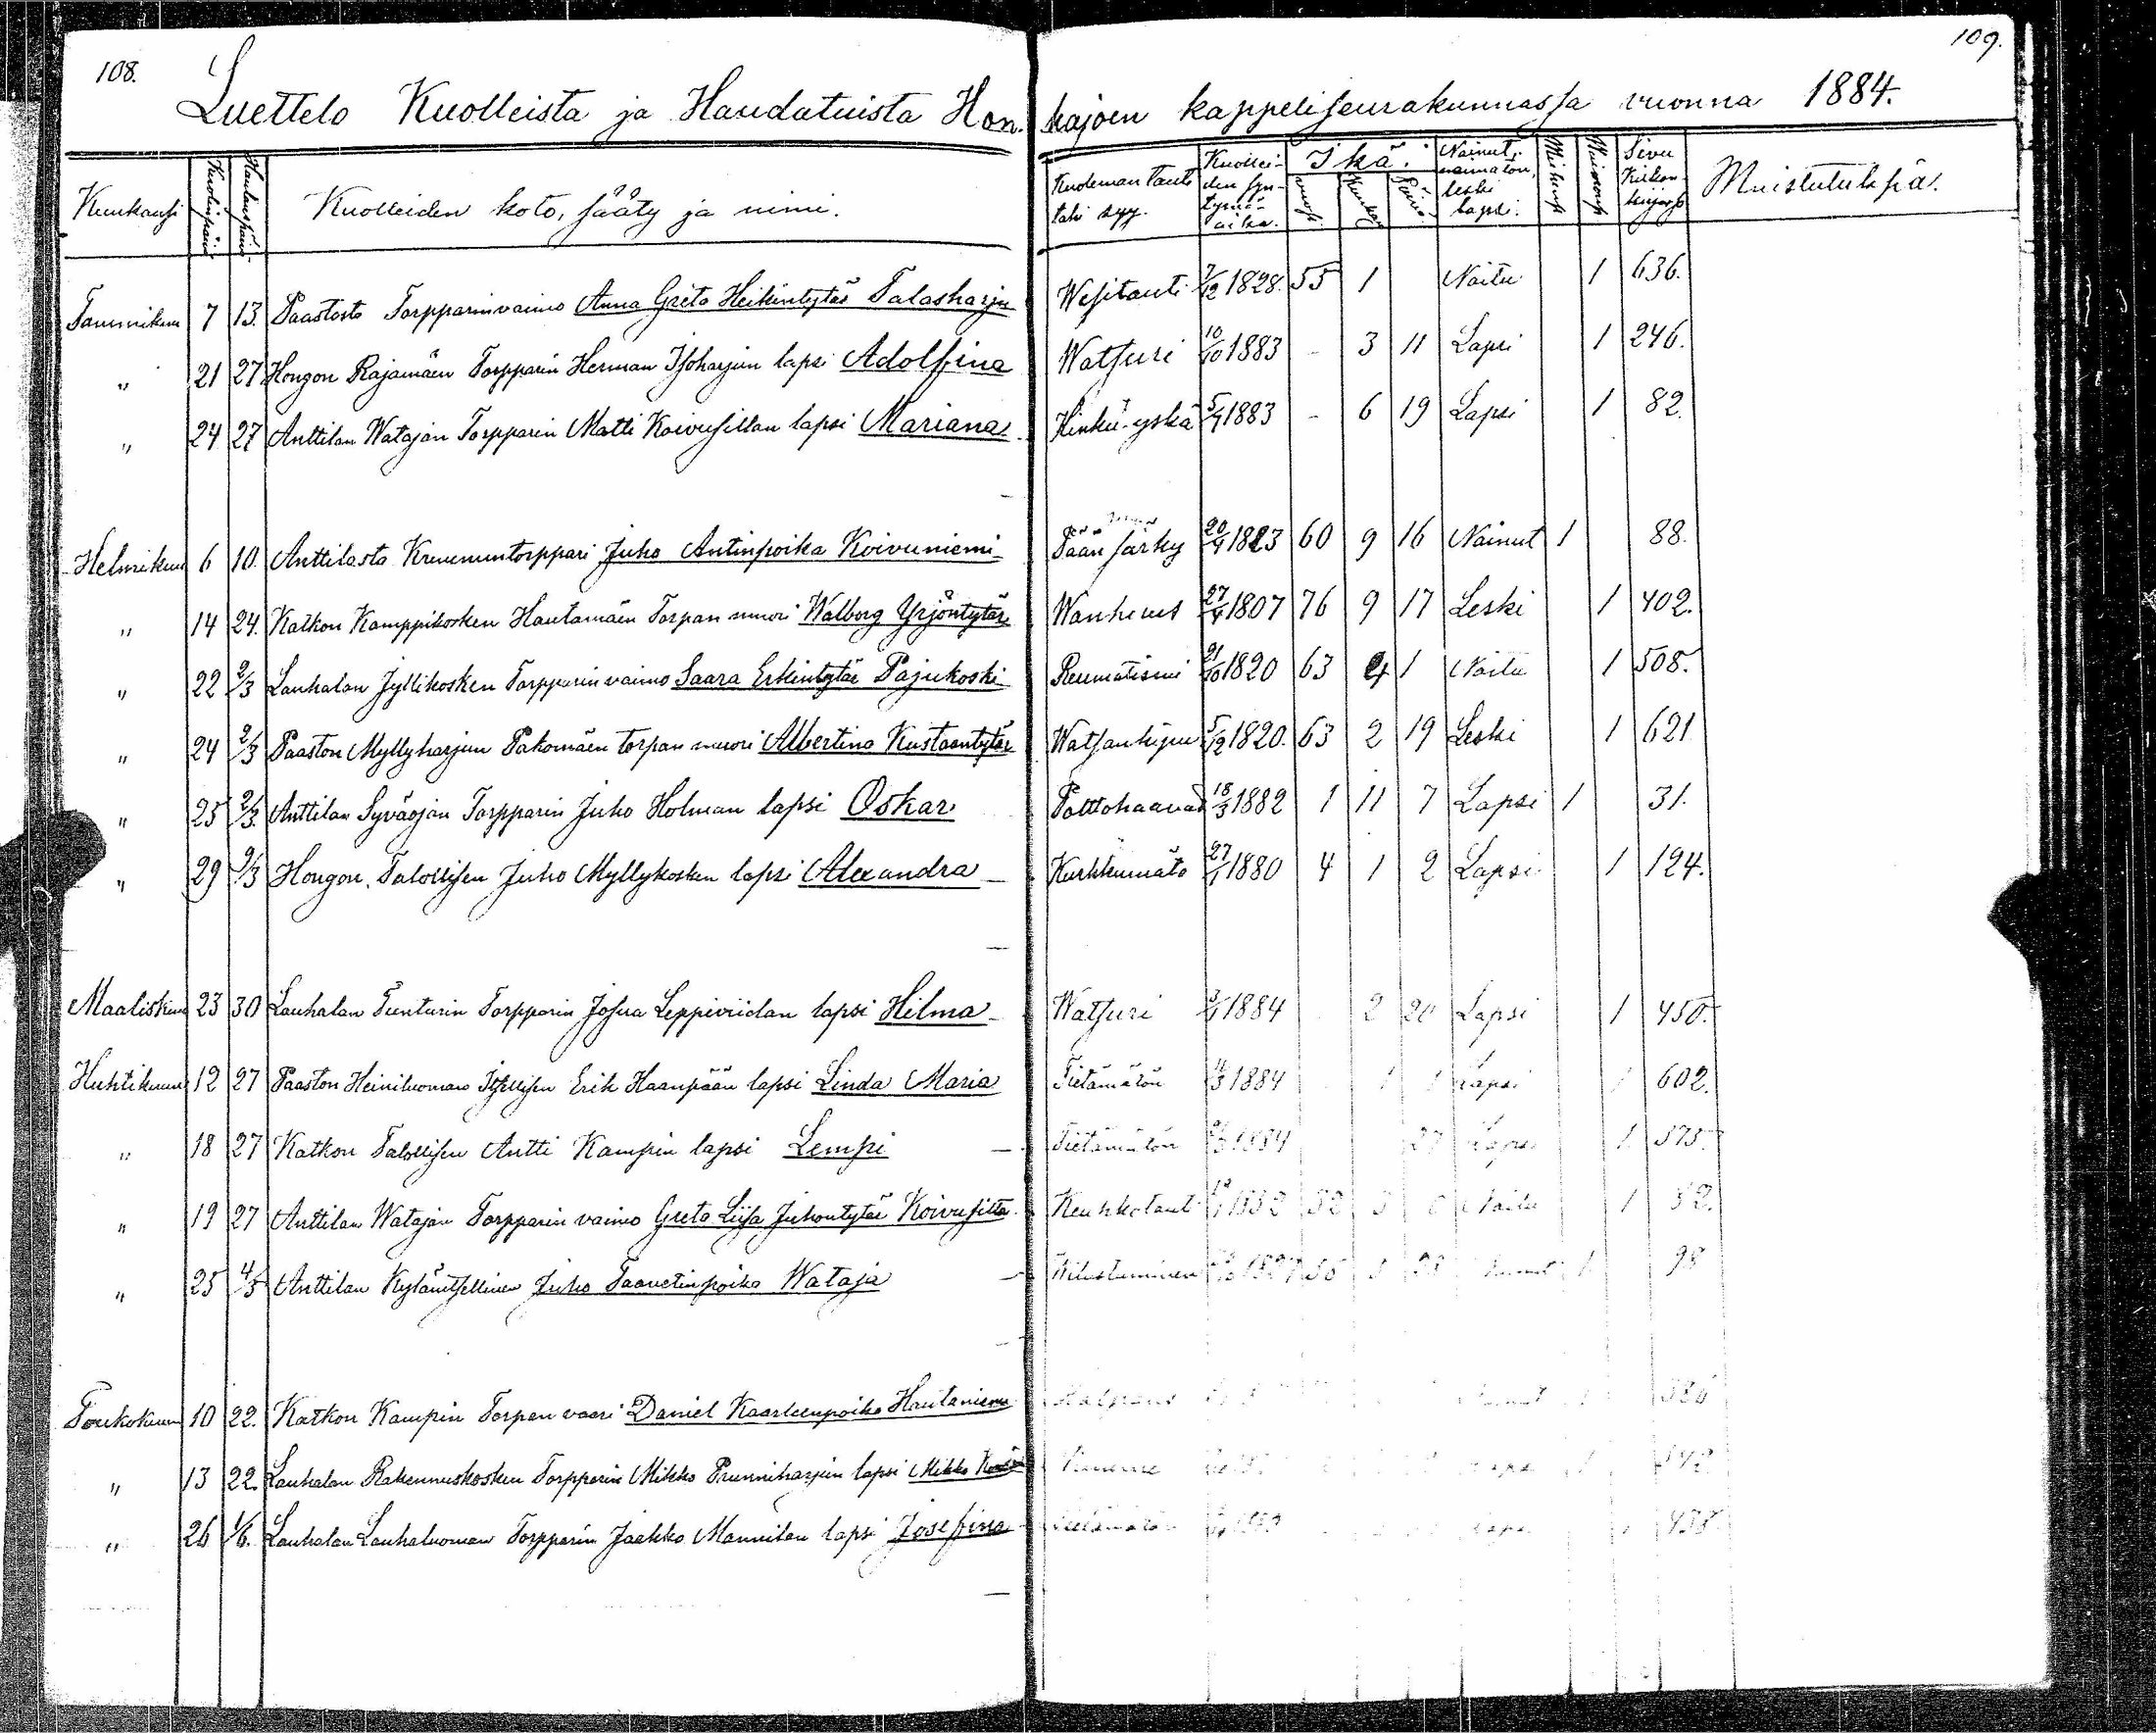 108. 109.
Luettelo Kuolleista ja Haudatuista Hon- kajoen kappeliseurakunnassa vuonna 1884.
Kuukausi Kuolinpäivä Hautauspäivä Kuolleiden koto, sääty ja nimi. Kuoleman tauti tahi syy. Kuollei- den syn- tymä- aika. Ikä. vuosi kuukausi päivä Nainut, naimatoin, leski lapsi. Miehenp. Vaimonp. Sivu Kirkon- kirjassa Muistutuksia.
Tammikuu 7 13. Paastosta Torpparinvaimo Anna Greta Heikintytär Talasharju Wesitauti 7/12 1828. 55 1 Naitu 1 636.
" 21 27 Hongon Rajamäen Torpparin Herman Isoharjun lapsi Adolfina Watsuri 10/10 1883 - 3 11 Lapsi 1 246.
" 24 27 Anttilan Watajan Torpparin Matti Koivusillan lapsi Mariana Hinkü-yskä 5/7 1883 - 6 19 Lapsi 1 82.
Helmikuu 6 10. Anttilasta Kruununtorppari Juho Antinpoika Koivuniemi Pään särky 20/4 1823 60 9 16 Nainut 1 88.
" 14 24. Katkon Kamppikosken Hautamäen Torpan muori Walborg Yrjöntytär Wanhuus 27/4 1807 76 9 17 Leski 1 402.
" 22 2/3 Lauhalan Jyllikosken Torpparinvaimo Saara Erkintytär Pajukoski Reumatismi 21/10 1820 63 4 1 Naitu 1 508.
" 24 2/3 Paaston Myllyharjun Pakomäen torpan muori Albertina Kustaantytär 5/12 1820. 63 2 19 Leski 1 621
" 25 2/3. Anttilan Syväojan Torpparin Juho Holman lapsi Oskar Polttohaavat 18/3 1882 1 11 7 Lapsi 1 31.
" 29 9/3 Hongon Talollisen Juho Myllykosken lapsi Alexandra Kurkkumäto 27/1 1880 4 1 2 Lapsi 1 124.
Maaliskuu 23 30 Lauhalan Tunturin Torpparin Josua Leppiviidan lapsi Hilma Watsuri 3/1 1884 2 20 Lapsi 1 450.
Huhtikuu 12 27 Paaston Heiniluoman Itsellisen Erik Haanpään lapsi Linda Maria Tietämätön 11/3 1884 1 1 Lapsi 1 602.
" 18 27 Katkon Talollisen Antti Kampin lapsi Lempi Tietämätön 1884 27 Lapsi 1 575
" 19 27 Anttilan Watajan Torpparin vaimo Greta Liisa Juhontytär Koivusilta Keuhkotauti Naitu 1
" 25 4/5 Anttilan Kyläinitsellinen Juho Taavetinpoika Wataja Wilustuminen 98
Toukokuu 10 22. Katkon Kampin Torpan vaari Daniel Kaarleenpoika Hautaniemi
" 13 22. Lauhalan Rakennuskosken Torpparin Mikko Prunniharjun lapsi Mikko
" 26 1/6. Lauhalan Lauhaluoman Torpparin Jaakko Mannilan lapsi Josefina Tietämätön